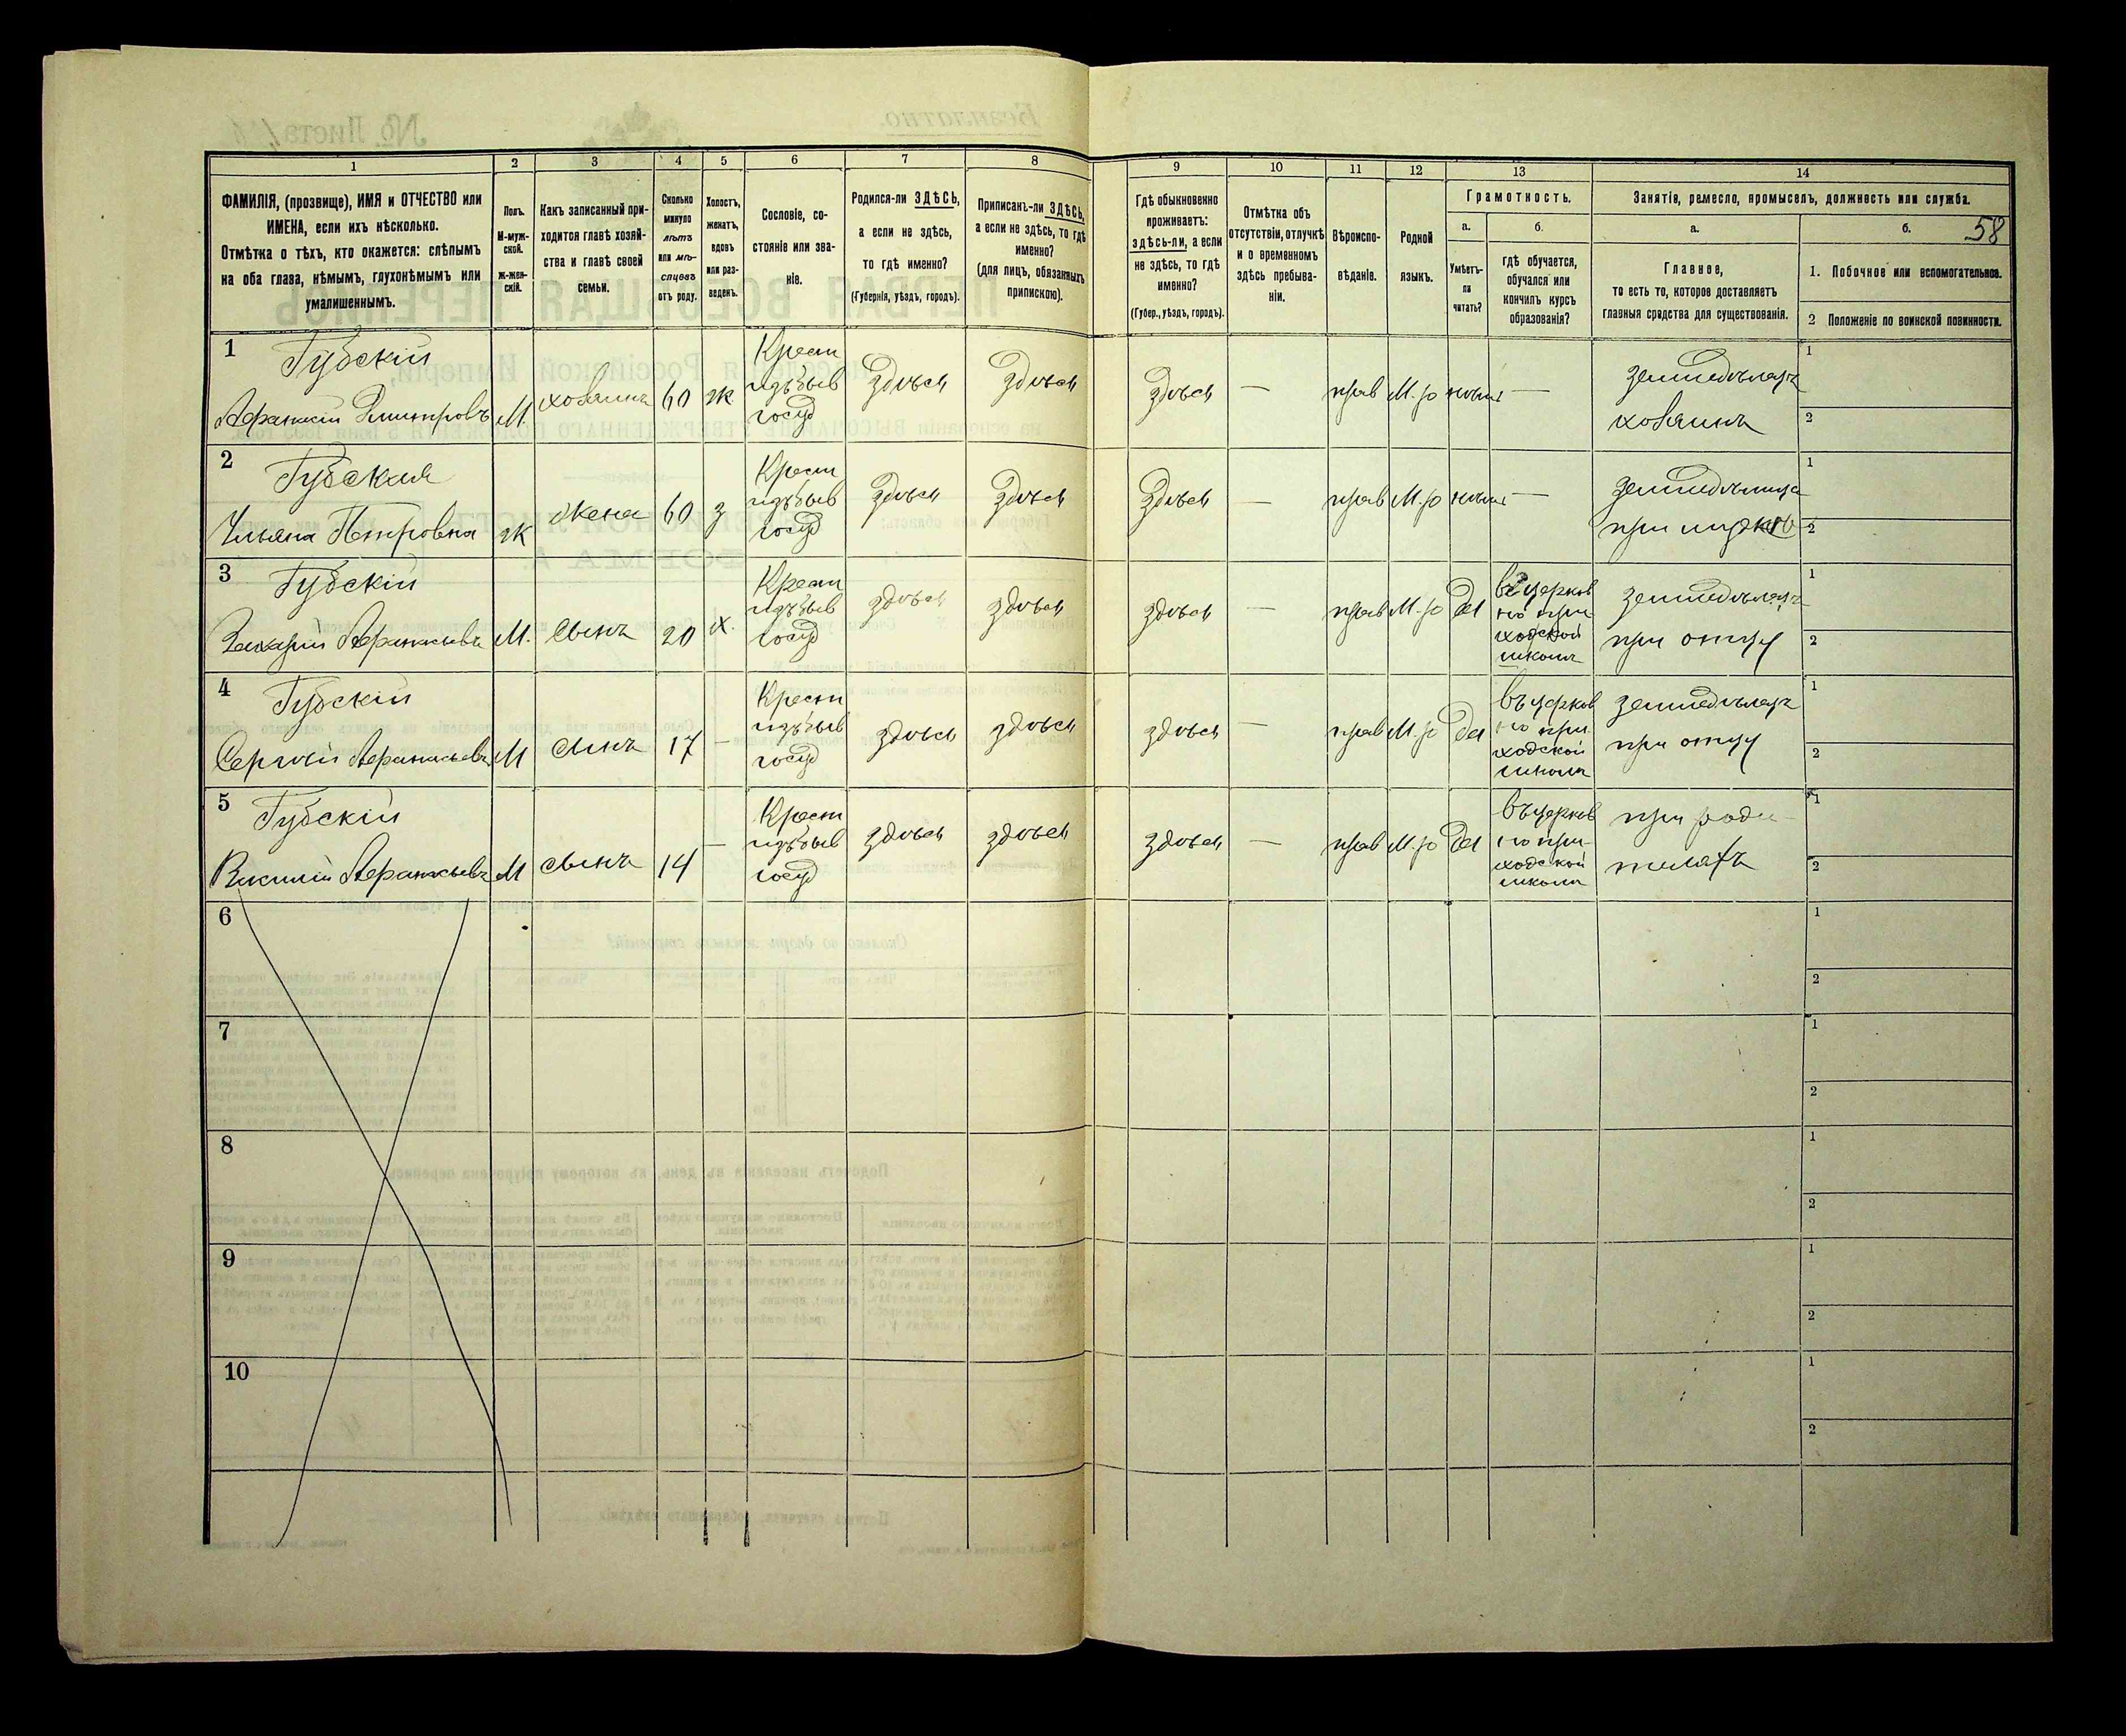 1 2 3 4 5 6 7 8 9 10 11 12 13 14
ФАМИЛІЯ, (прозвище), ИМЯ и ОТЧЕСТВО или
ИМЕНА, если ихъ нѣсколько.
Отмѣтка о тѣхъ, кто окажется: слѣпымъ
на оба глаза, нѣмымъ, глухонѣмымъ или
умалишеннымъ.
Полъ.
М-муж-
ской.
ж-жен-
скій.
Какъ записанный при-
ходится главѣ хозяй-
ства и главѣ своей
семьи.
Сколько
минуло
лѣтъ
или мѣ-
сяцевъ
отъ роду.
Холостъ,
женатъ,
вдовъ
или раз-
веденъ.
Сословіе, со-
стояніе или зва-
ніе.
Родился-ли ЗДѢСЬ,
а если не здѣсь,
то гдѣ именно?
(Губернія, уѣздъ, городъ).
Приписанъ-ли ЗДѢСЬ,
а если не здѣсь, то гдѣ
именно?
(для лицъ, обязанныхъ
припискою).
Гдѣ обыкновенно
проживаетъ:
здѣсь-ли, а если
не здѣсь, то гдѣ
именно?
(Губер., уѣздъ, городъ).
Отмѣтка объ
отсутствіи, отлучкѣ
и о временномъ
здѣсь пребыва-
ніи.
Вѣроиспо-
вѣданіе.
Родной
языкъ.
Грамотность.
а.
Умѣетъ-
ли
читать?
б.
гдѣ обучается,
обучался или
кончилъ курсъ
образованія?
Занятіе, ремесло, промыселъ, должность или служба.
а.
Главное,
то есть то, которое доставляетъ
главныя средства для существованія.
б.
58
1. Побочное или вспомогательное.
2 Положеніе по воинской повинности.
1
Губскій
Афанасій Дмитровъ
М.
хозяинъ
60
ж
Крест
изъ быв
госуд
здѣсь
здѣсь
здѣсь
—
прав
М.р
—
земледѣлецъ
хозяинъ
1
2
2
Губская
Ульяна Петровна
ж
жена
60
з
Крест
изъ быв
госуд
здѣсь
здѣсь
здѣсь
—
прав
М.р
—
при
1
2
3
Губскій
Захарій Афанасьевъ
М.
сынъ
20
х.
Крест
изъ быв
госуд
здѣсь
здѣсь
здѣсь
—
прав
М.р
да
въ церков
но при-
ходской
школѣ
земледѣлецъ
при отцу
1
2
4
Губскій
Сергѣй Афанасьевъ
М
сынъ
17
—
Крест
изъ быв
госуд
здѣсь
здѣсь
здѣсь
—
прав
М.р
да
въ церков
но при
ходской
школѣ
земледѣлецъ
при отцу
1
2
5
Губскій
Василій Афанасьевъ
М
сынъ
14
—
Крест
изъ быв
госуд
здѣсь
здѣсь
здѣсь
—
прав
М.р
да
въ церков
но при-
ходской
школѣ
при роди-
теляхъ
1
2
6
1
2
7
1
2
8
1
2
9
1
2
10
1
2